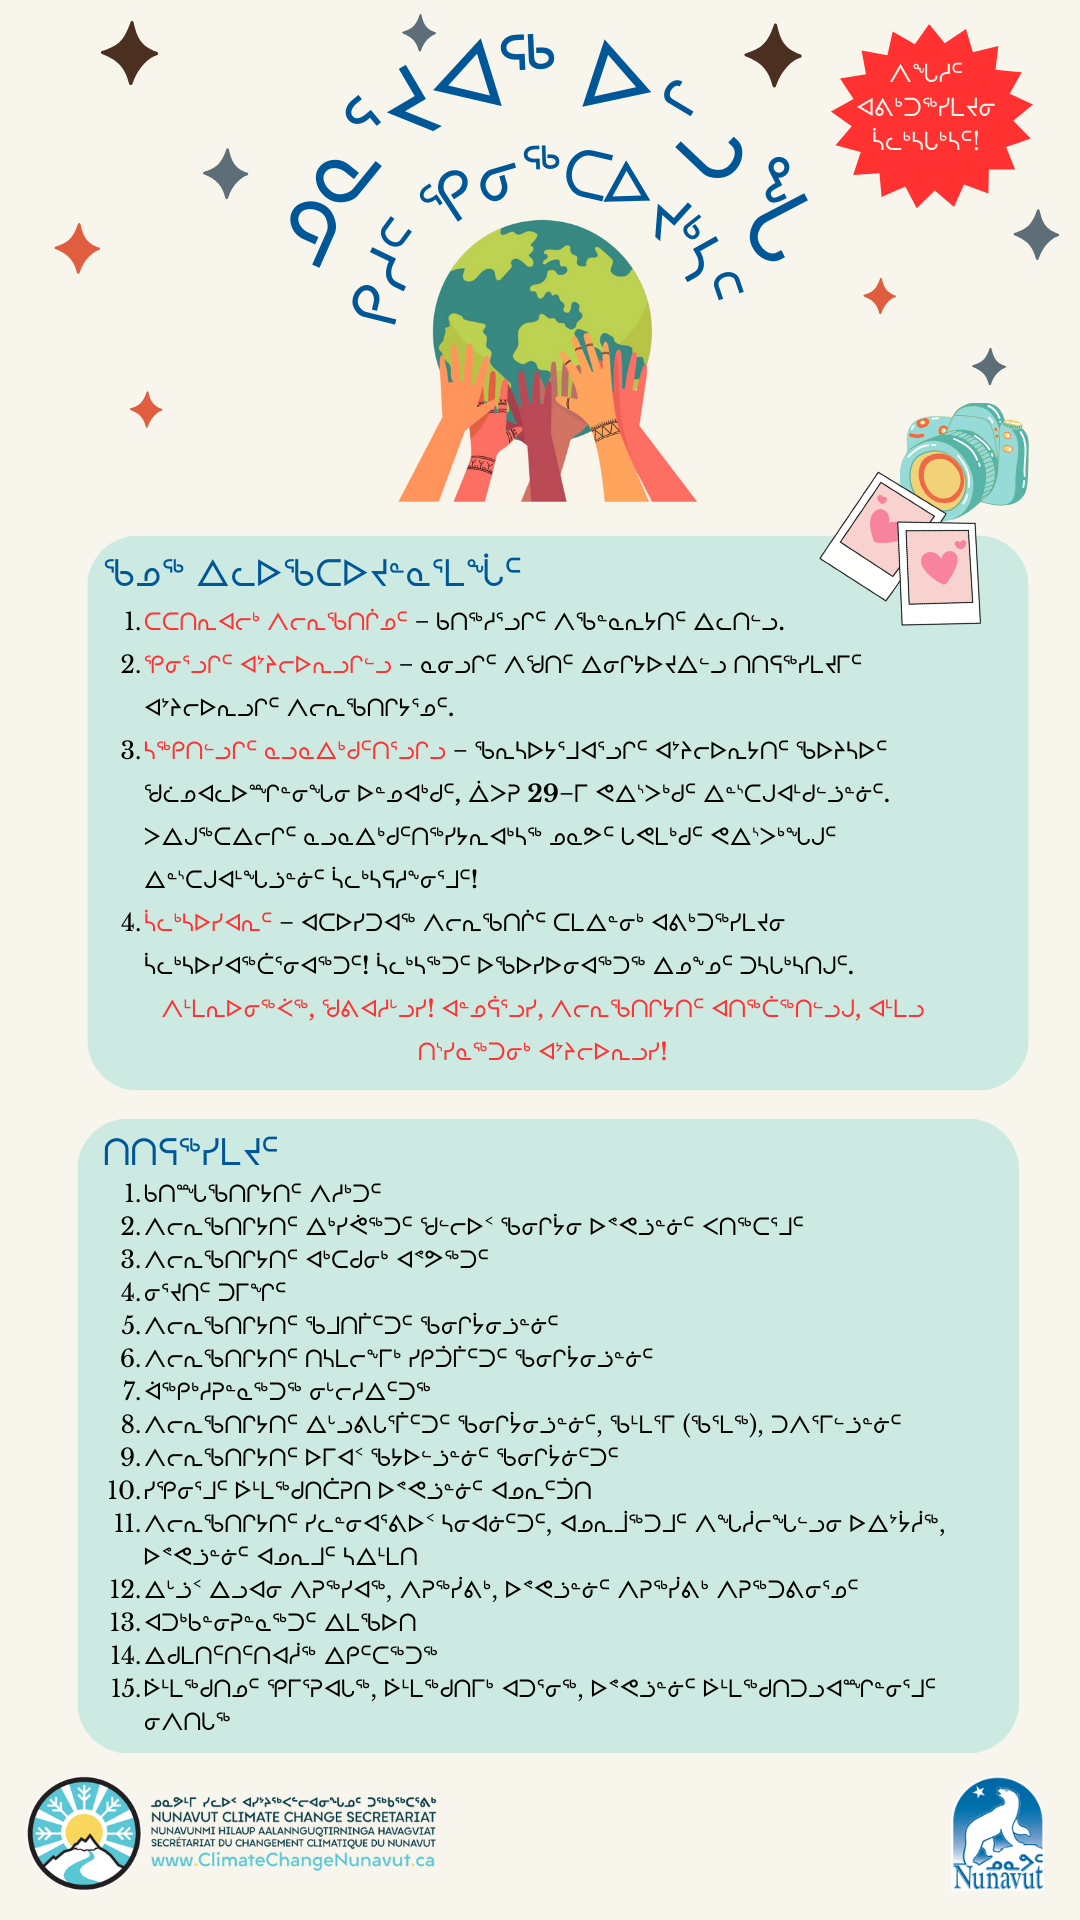 ᑭᓱᓕᑦ ᕿᓂᖅᑕᐃᔪᒃᓴᑦ
ᐱᖓᓱᑦ
ᐊᕕᒃᑐᖅᓯᒪᔪᓂ
ᓵᓚᒃᓴᒐᒃᓴᑦ!
ᖃᓄᖅ ᐃᓚᐅᖃᑕᐅᔪᓐᓇᕐᒪᖔᑦ
1. ᑕᑕᑎᕆᐊᓕᒃ ᐱᓕᕆᖃᑎᒌᓄᑦ – ᑲᑎᖅᓱᕐᓗᒋᑦ ᐱᖃᓐᓇᕆᔭᑎᑦ ᐃᓚᑎᓪᓗ.
2. ᕿᓂᕐᓗᒋᑦ ᐊᔾᔨᓕᐅᕆᓗᒋᓪᓗ – ᓇᓂᓗᒋᑦ ᐱᖁᑎᑦ ᐃᓂᒋᔭᐅᔪᐃᓪᓗ ᑎᑎᕋᖅᓯᒪᔪᒥᑦ
ᐊᔾᔨᓕᐅᕆᓗᒋᑦ ᐱᓕᕆᖃᑎᒋᔭᕐᓄᑦ.
3. ᓴᖅᑭᑎᓪᓗᒋᑦ ᓇᓗᓇᐃᒃᑯᑦᑎᕐᓗᒋᓗ – ᖃᕆᓴᐅᔭᕐᒧᐊᕐᓗᒋᑦ ᐊᔾᔨᓕᐅᕆᔭᑎᑦ ᖃᐅᔨᓴᐅᑦ
ᖁᓛᓄᐊᓚᐅᙱᓐᓂᖓᓂ ᐅᓐᓄᐊᒃᑯᑦ, ᐄᐳᕈ 29–ᒥ ᕙᐃᔅᐳᒃᑯᑦ ᐃᓐᔅᑕᒍᐊᒻᑯᓪᓘᓐᓃᑦ.
ᐳᐃᒍᖅᑕᐃᓕᒋᑦ ᓇᓗᓇᐃᒃᑯᑦᑎᖅᓯᔭᕆᐊᒃᓴᖅ ᓄᓇᕗᑦ ᒐᕙᒪᒃᑯᑦ ᕙᐃᔅᐳᒃᖓᒍᑦ
ᐃᓐᔅᑕᒍᐊᒻᖓᓘᓐᓃᑦ ᓵᓚᒃᓴᕋᓱᖕᓂᕐᒧᑦ!
4. ᓵᓚᒃᓴᐅᓯᐊᕆᑦ – ᐊᑕᐅᓯᑐᐊᖅ ᐱᓕᕆᖃᑎᒌᑦ ᑕᒪᐃᓐᓂᒃ ᐊᕕᒃᑐᖅᓯᒪᔪᓂ
ᓵᓚᒃᓴᐅᓯᐊᖅᑖᕐᓂᐊᖅᑐᑦ! ᓵᓚᒃᓴᖅᑐᑦ ᐅᖃᐅᓯᐅᓂᐊᖅᑐᖅ ᐃᓄᖕᓄᑦ ᑐᓴᒐᒃᓴᑎᒍᑦ.
ᐱᒻᒪᕆᐅᓂᖅᐹᖅ, ᖁᕕᐊᓱᒡᓗᓯ! ᐊᓐᓄᕌᕐᓗᓯ, ᐱᓕᕆᖃᑎᒋᔭᑎᑦ ᐊᑎᖅᑖᖅᑎᓪᓗᒍ, ᐊᒻᒪᓗ
ᑎᔅᓯᓇᖅᑐᓂᒃ ᐊᔾᔨᓕᐅᕆᓗᓯ!
ᑎᑎᕋᖅᓯᒪᔪᑦ
1. ᑲᑎᙵᖃᑎᒋᔭᑎᑦ ᐱᓱᒃᑐᑦ
2. ᐱᓕᕆᖃᑎᒋᔭᑎᑦ ᐃᒃᓯᕚᖅᑐᑦ ᖁᓪᓕᐅᑉ ᖃᓂᒋᔮᓂ ᐅᕝᕙᓘᓐᓃᑦ ᐸᑎᖅᑕᕐᒧᑦ
3. ᐱᓕᕆᖃᑎᒋᔭᑎᑦ ᐊᒃᑕᑯᓂᒃ ᐊᕝᕗᖅᑐᑦ
4. ᓂᕐᔪᑎᑦ ᑐᒥᖏᑦ
5. ᐱᓕᕆᖃᑎᒋᔭᑎᑦ ᖃᒧᑎᒦᑦᑐᑦ ᖃᓂᒋᔮᓂᓘᓐᓃᑦ
6. ᐱᓕᕆᖃᑎᒋᔭᑎᑦ ᑎᓴᒪᓕᖕᒥᒃ ᓯᑭᑑᒦᑦᑐᑦ ᖃᓂᒋᔮᓂᓘᓐᓃᑦ
7. ᐋᖅᑭᒃᓱᕈᓐᓇᖅᑐᖅ ᓂᒡᓕᓱᐃᑦᑐᖅ
8. ᐱᓕᕆᖃᑎᒋᔭᑎᑦ ᐃᒡᓗᕕᒐᕐᒦᑦᑐᑦ ᖃᓂᒋᔮᓂᓘᓐᓃᑦ, ᖃᒻᒪᕐᒥ (ᖃᕐᒪᖅ), ᑐᐱᕐᒥᓪᓘᓐᓃᑦ
9. ᐱᓕᕆᖃᑎᒋᔭᑎᑦ ᐅᒥᐊᑉ ᖃᔭᐅᓪᓘᓐᓃᑦ ᖃᓂᒋᔮᓃᑦᑐᑦ
10. ᓯᕿᓂᕐᒧᑦ ᐆᒻᒪᖅᑯᑎᑖᕈᑎ ᐅᕝᕙᓘᓐᓃᑦ ᐊᓄᕆᑦᑑᑎ
11. ᐱᓕᕆᖃᑎᒋᔭᑎᑦ ᓯᓚᓐᓂᐊᕐᕕᐅᑉ ᓴᓂᐊᓃᑦᑐᑦ, ᐊᓄᕆᒨᖅᑐᒧᑦ ᐱᖓᓲᓕᖓᓪᓗᓂ ᐅᐃᔾᔮᓲᖅ,
ᐅᕝᕙᓘᓐᓃᑦ ᐊᓄᕆᒧᑦ ᓴᐃᒻᒪᑎ
12. ᐃᒡᓘᑉ ᐃᓗᐊᓂ ᐱᕈᖅᓯᐊᖅ, ᐱᕈᖅᓰᕕᒃ, ᐅᕝᕙᓘᓐᓃᑦ ᐱᕈᖅᓰᕕᒃ ᐱᕈᖅᑐᕕᓂᕐᓄᑦ
13. ᐊᑐᒃᑲᓐᓂᕈᓐᓇᖅᑐᑦ ᐃᒪᖃᐅᑎ
14. ᐃᑯᒪᑎᑦᑎᑦᑎᐊᓲᖅ ᐃᑭᑦᑕᖅᑐᖅ
15. ᐆᒻᒪᖅᑯᑎᓄᑦ ᕿᒥᕐᕈᐊᒐᖅ, ᐆᒻᒪᖅᑯᑎᒥᒃ ᐊᑐᕐᓂᖅ, ᐅᕝᕙᓘᓐᓃᑦ ᐆᒻᒪᖅᑯᑎᑐᓗᐊᙱᓐᓂᕐᒧᑦ
ᓂᐱᑎᒐᖅ
NUNAVUT CLIMATE CHANGE SECRETARIAT
NUNAVUNMI HILAUP AALANNGUQTIRNINGA HAVAGVIAT
SECRÉTARIAT DU CHANGEMENT CLIMATIQUE DU NUNAVUT
www.ClimateChangeNunavut.ca
ᓄᓇᕗᑦ
Nunavut